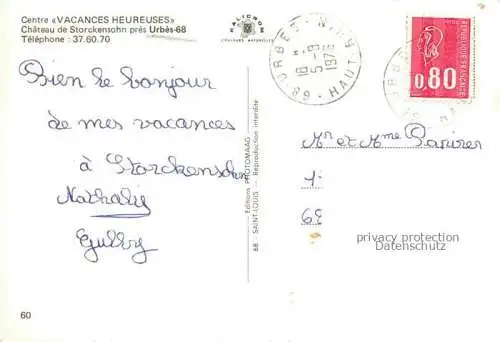 Centre «VACANCES HEUREUSES»
Château de Storckensohn près Urbès-68
Téléphone : 37.60.70
KALICROM
COULEURS NATURELLES
68-URBES HAUT-RHIN
18 H
5-9
1976
0,80
RÉPUBLIQUE FRANÇAISE
Bien le bonjour
de mes vacances
à Storckensohn
Nathalie
Mr et Mme
68 SAINT-LOUIS — Editions PHOTOMAAG — Reproduction interdite
privacy protection
Datenschutz
60